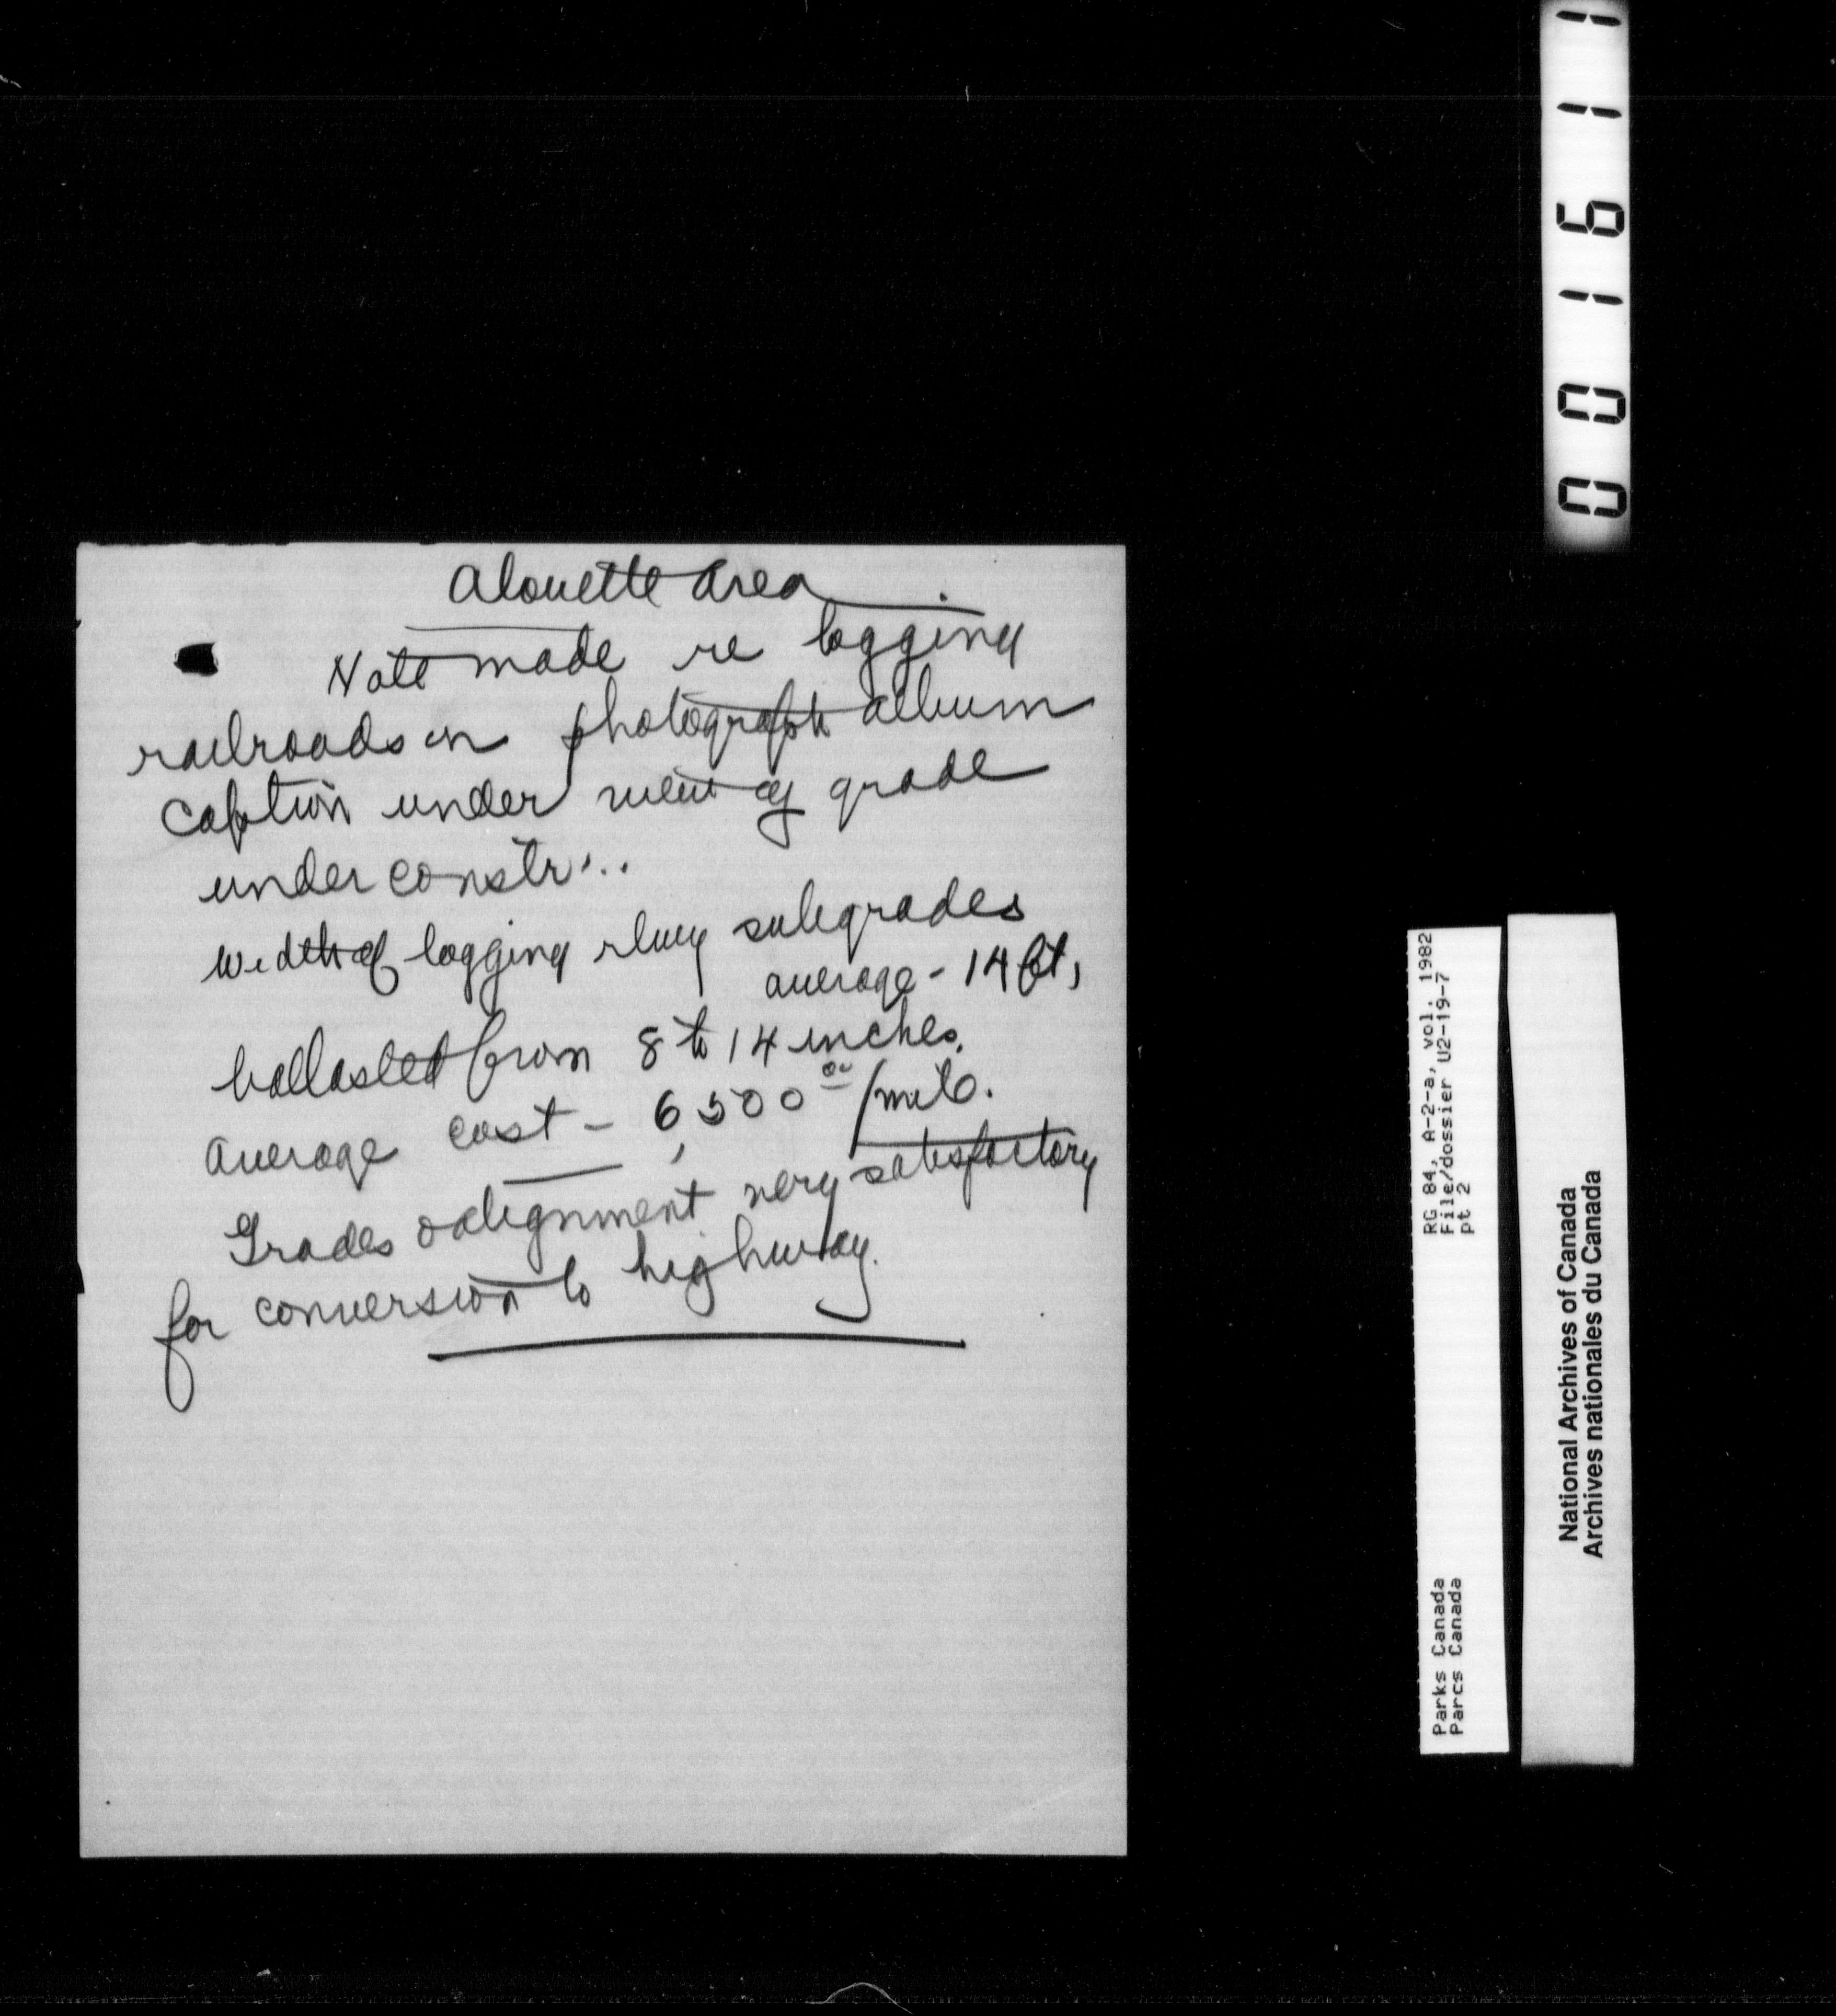 Alouette Area.
Note made re logging
railroads in photograph album
caption under view of grade
under constr...
width of logging rlwy subgrades
average - 14 ft,
ballasted from 8 to 14 inches.
average cost - 6,500 00/mile.
Grades & alignment very satisfactory
for conversion to highway.
001611
RG 84, A-2-a, vol. 1982
File/dossier U2-19-7
pt 2
Parks Canada
Parcs Canada
National Archives of Canada
Archives nationales du Canada